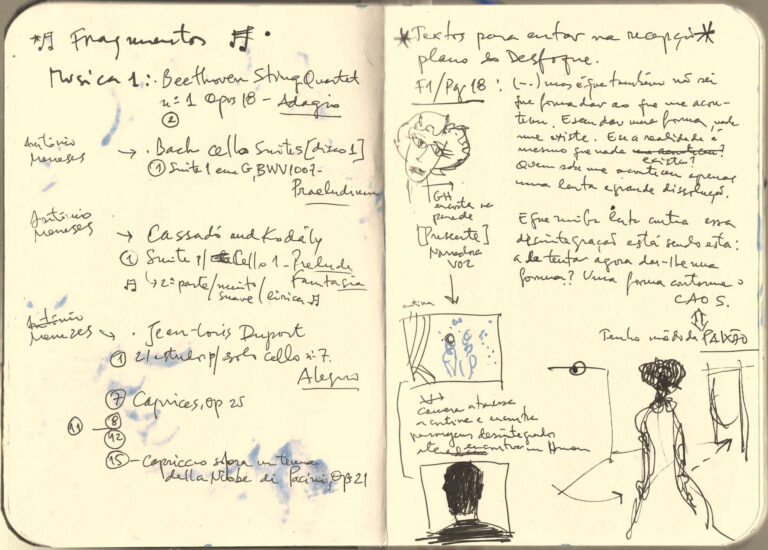 *♫ Fragmentos ♫.
Musica 1:. Beethoven String Quartet
nº 1 Opus 18 - Adagio
②
António
Meneses → . Bach cello Suites [disco 1]
① Suite 1 em G, BWV1007-
Praeludium
António
Meneses → Cassadó and Kodály
① Suite p/ Cello 1 - Preludi
Fantasia
♫ ↳ 2ª parte/muito
suave/lírica ♫
António
Menezes → . Jean-Louis Duport
① 21 estudos p/ solo cello nº 7.
Alegro
⑦ Caprices, Op 25
⑪ — ⑧
⑫
⑮ - Capriccio sopra un tema
della Niobe di Pacini, Op 21
*Textos para entrar na recepção*
plano do Desfoque.
F1/Pag 18 : (-..) mas é que também não sei
que forma dar ao que me acon-
teceu. E sem dar uma forma, nada
me existe. E e a realidade é
mesmo que nada existiu?
Quem sabe me aconteceu apenas
uma lenta e grande dissolução.
GH
encosta na
parede
[Presente]
Narradora
voz
E que minha luta contra essa
desintegração está sendo esta:
a de tentar agora dar-lhe uma
forma? Uma forma contorna o
CAOS.
Tenho medo da PAIXÃO
cortina
camera atravessa
a cortina e encontra
personagem desintegrado
até encontrar um Homem